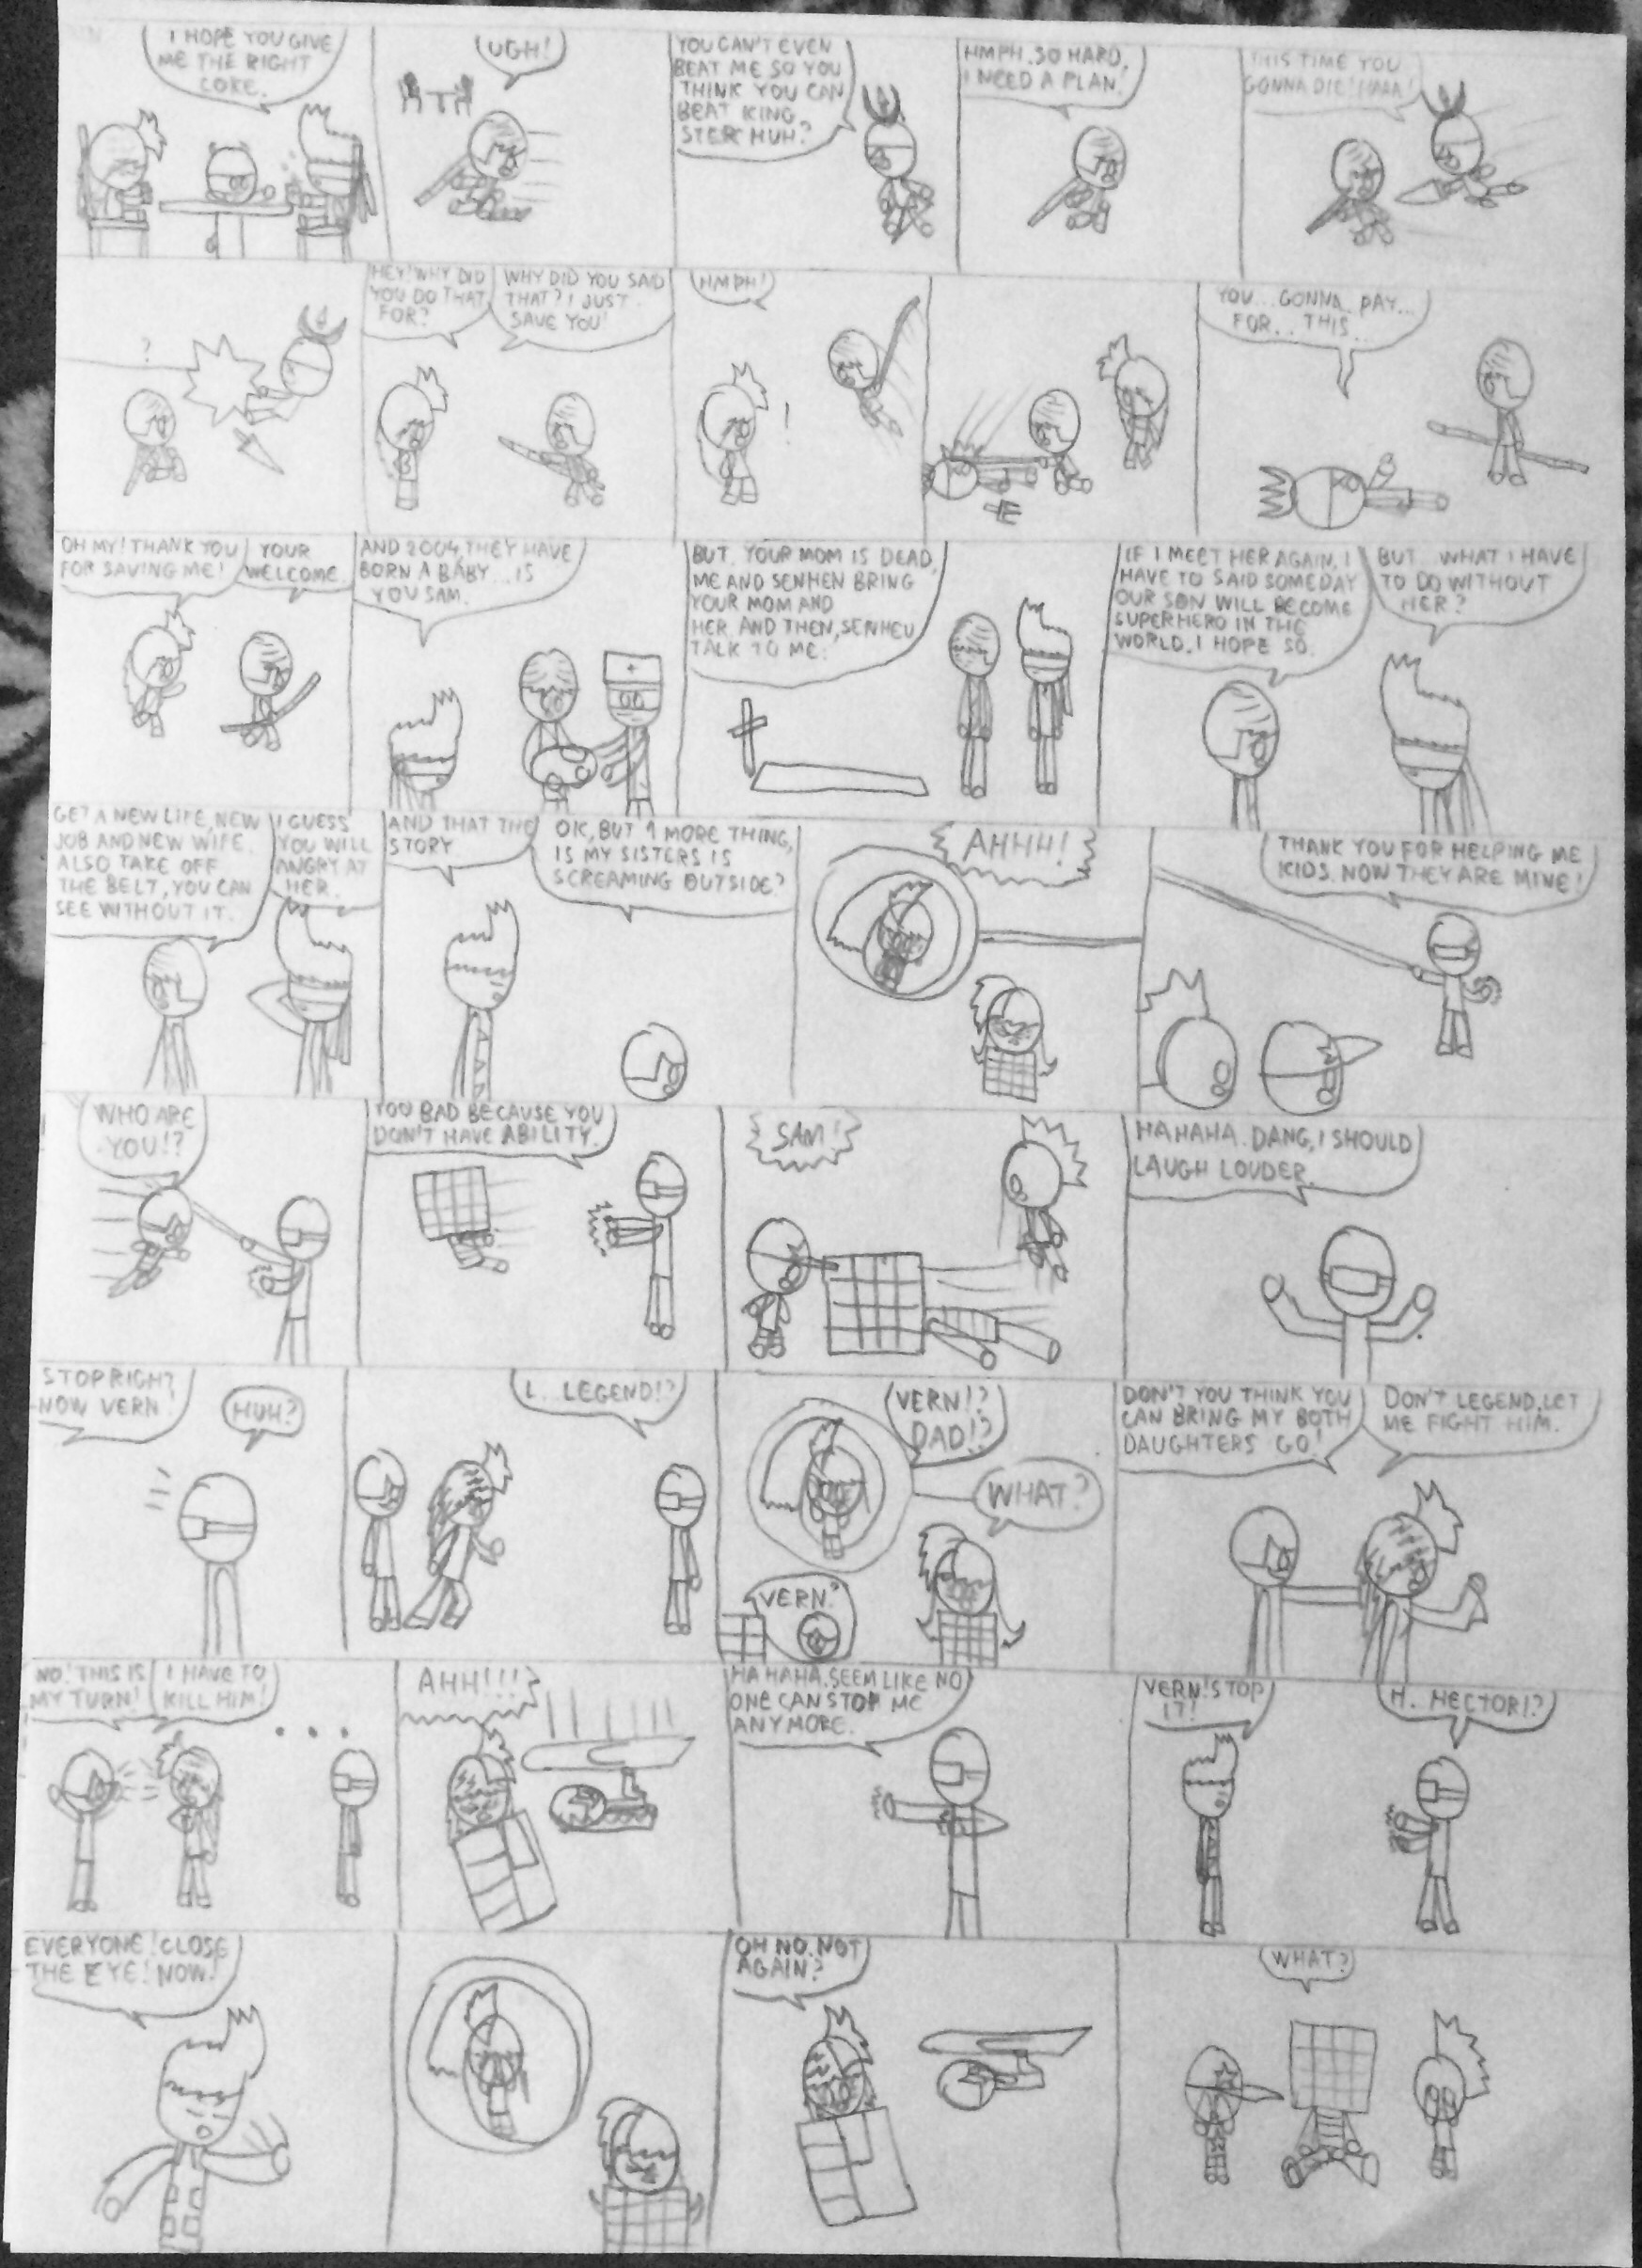 I HOPE YOU GIVE
ME THE RIGHT
COKE.
UGH!
YOU CAN'T EVEN
BEAT ME SO YOU
THINK YOU CAN
BEAT KING
STER HUH?
HMPH. SO HARD.
I NEED A PLAN!
THIS TIME YOU
GONNA DIE! HAAA!
?
HEY! WHY DID
YOU DO THAT
FOR?
WHY DID YOU SAID
THAT? I JUST
SAVE YOU!
HMPH!
!
YOU... GONNA... PAY...
FOR... THIS...
OH MY! THANK YOU
FOR SAVING ME!
YOUR
WELCOME.
AND 2004, THEY HAVE
BORN A BABY... IS
YOU SAM.
BUT. YOUR MOM IS DEAD,
ME AND SENHEN BRING
YOUR MOM AND
HER AND THEN, SENHEU
TALK TO ME.
IF I MEET HER AGAIN, I
HAVE TO SAID SOMEDAY
OUR SON WILL BECOME
SUPERHERO IN THE
WORLD. I HOPE SO.
BUT... WHAT I HAVE
TO DO WITHOUT
HER?
GET A NEW LIFE, NEW
JOB AND NEW WIFE.
ALSO TAKE OFF
THE BELT, YOU CAN
SEE WITHOUT IT.
I GUESS
YOU WILL
ANGRY AT
HER.
AND THAT THE
STORY
OK, BUT 1 MORE THING,
IS MY SISTERS IS
SCREAMING OUTSIDE?
AHHH!
THANK YOU FOR HELPING ME
KIDS. NOW THEY ARE MINE!
WHO ARE
YOU!?
TOO BAD BECAUSE YOU
DON'T HAVE ABILITY.
SAM!
HAHAHA. DANG, I SHOULD
LAUGH LOUDER.
STOP RIGHT
NOW VERN!
HUH?
L.. LEGEND!?
VERN!?
DAD!?
WHAT?
VERN?
DON'T YOU THINK YOU
CAN BRING MY BOTH
DAUGHTERS GO!
DON'T LEGEND, LET
ME FIGHT HIM.
NO! THIS IS
MY TURN!
I HAVE TO
KILL HIM!
...
AHH!!!
HAHAHA. SEEM LIKE NO
ONE CAN STOP ME
ANYMORE.
VERN! STOP
IT!
H.. HECTOR!?
EVERYONE! CLOSE
THE EYE! NOW!
OH NO. NOT
AGAIN?
WHAT?